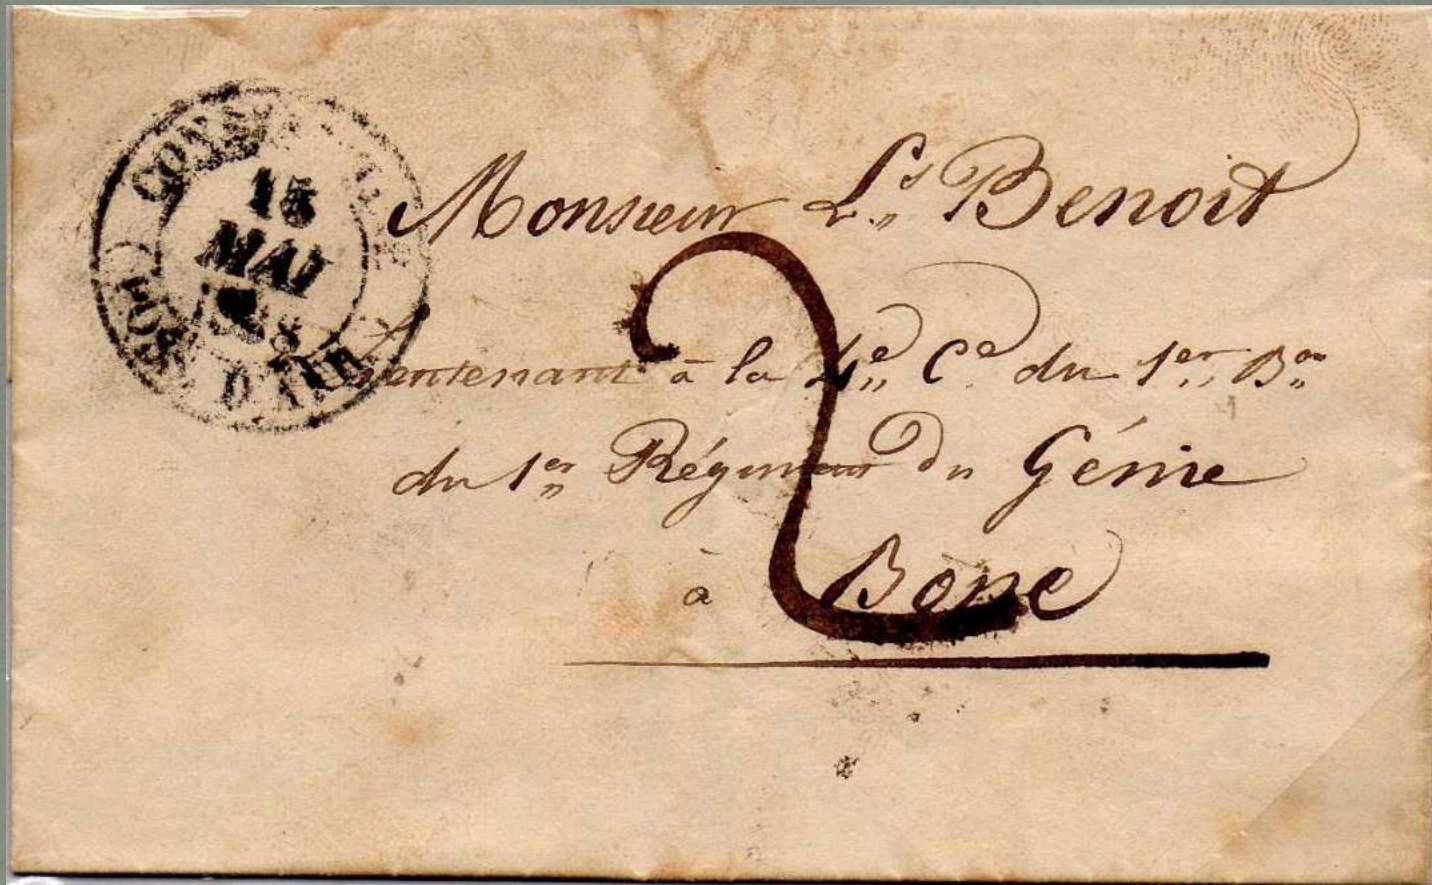 15
MAI
POSS. D'AFR.
Monsieur Ls. Benoit
Lieutenant à la 4e Ce du 1er Bon
du 1er Régiment du Génie
à Bone
2